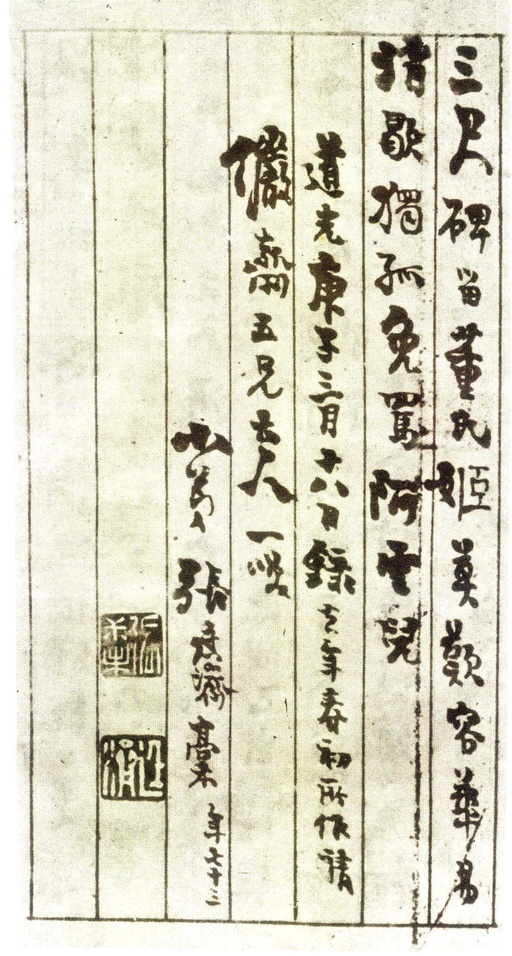 三尺碑留董氏姬莫歎容華易
消歇獨孤免罵阿雲兒
道光庚子三月十八日錄去年春初所作請
儼齋五兄大人一咲
小弟張廷濟稾 年七十三
張
廷濟